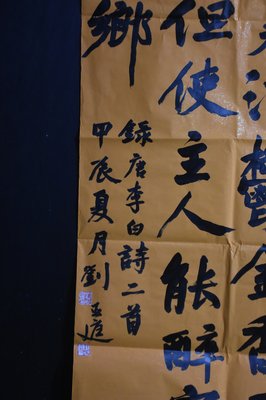 美酒鬱金香
但使主人能醉客
鄉
錄唐李白詩二首
甲辰夏月劉